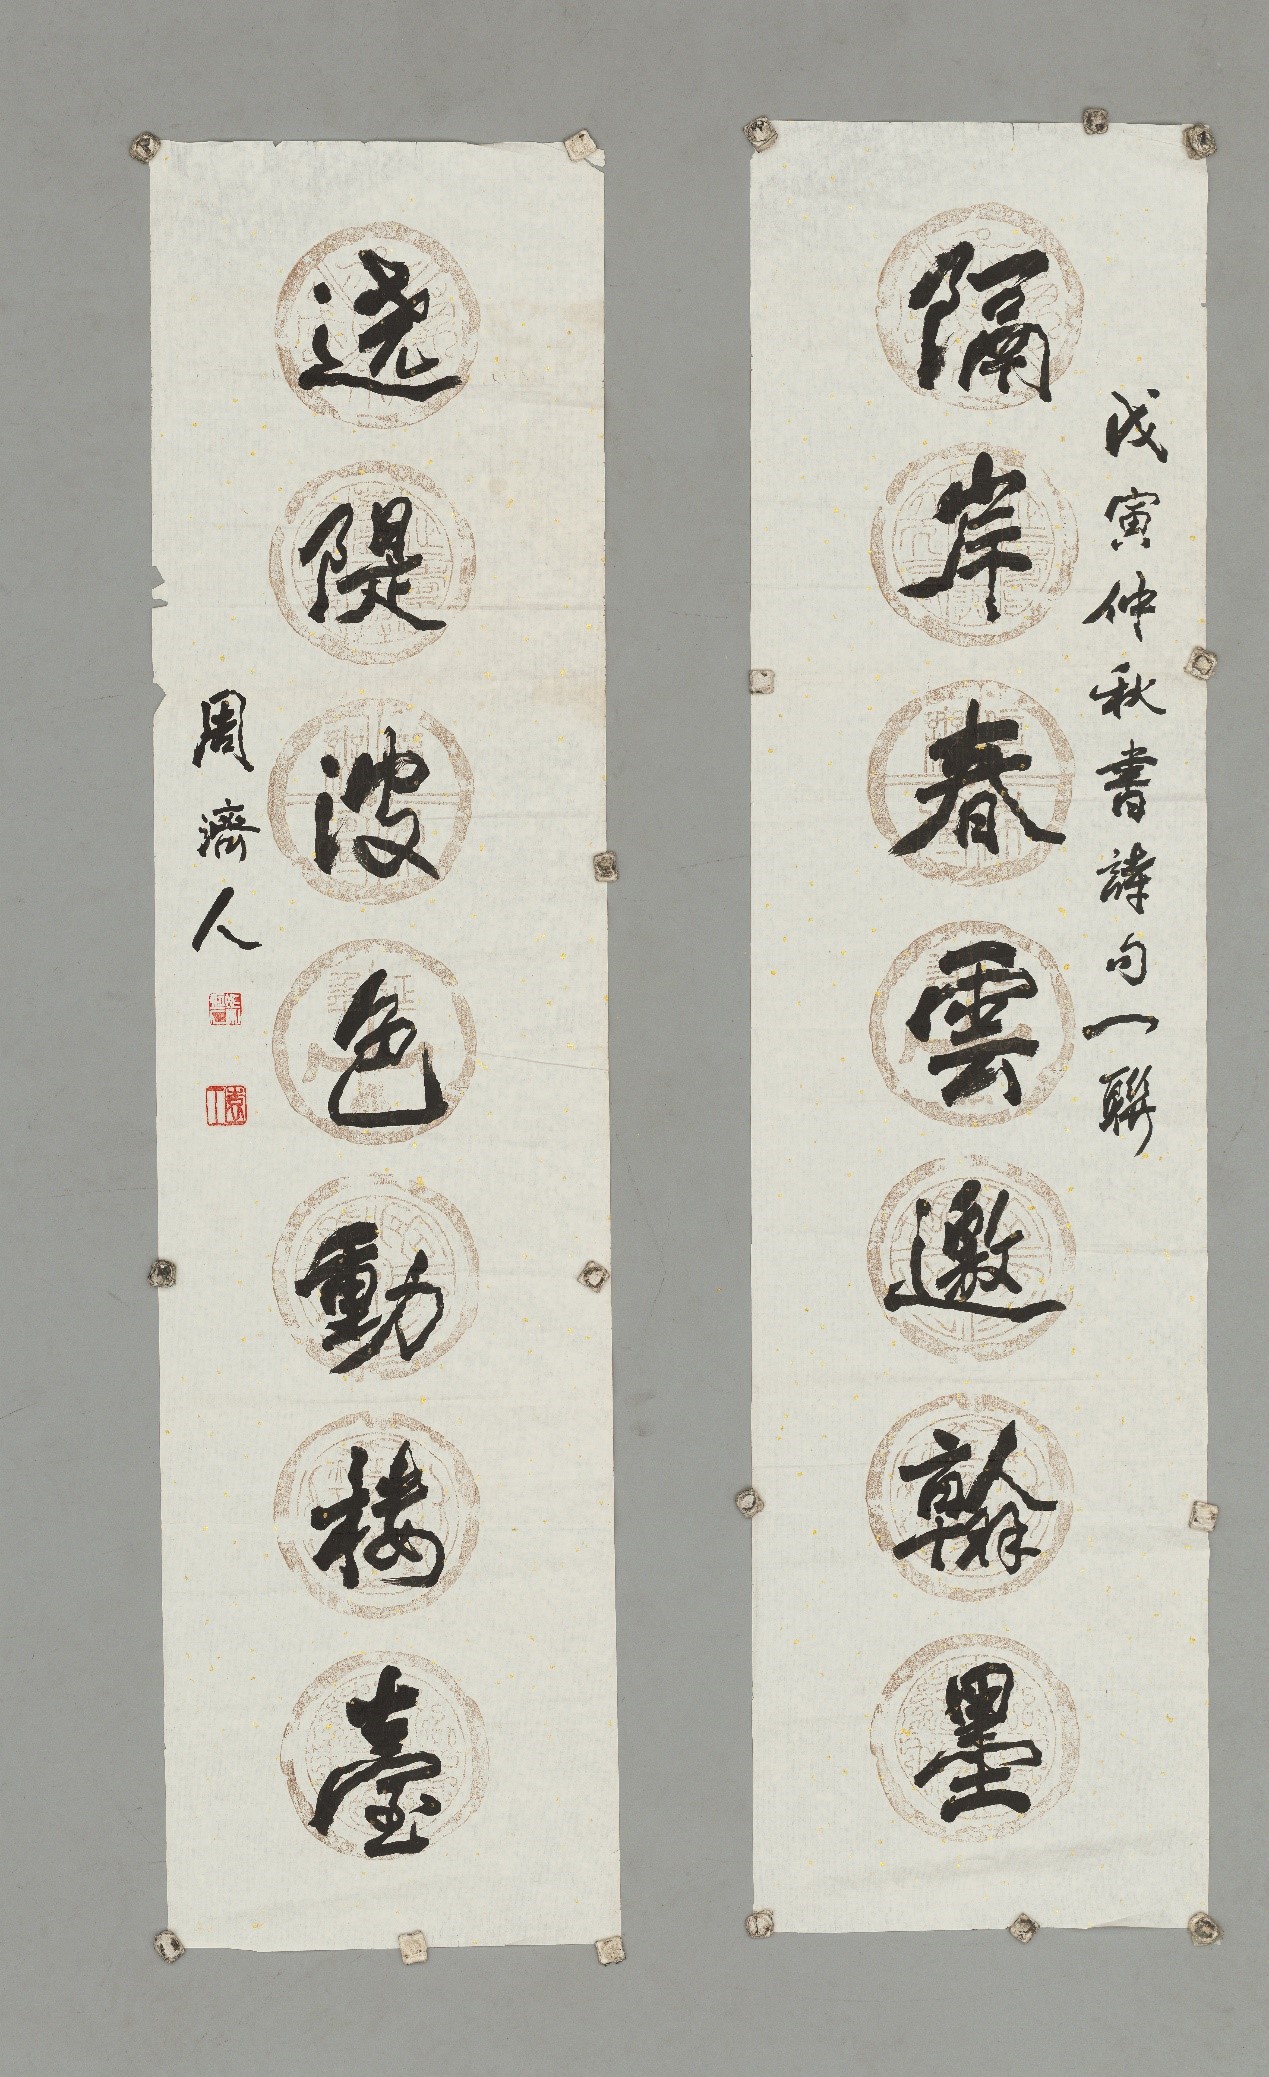 戊寅仲秋書詩句一聯
隔岸春雲邀翰墨
遶隄波色動楼臺
周濟人